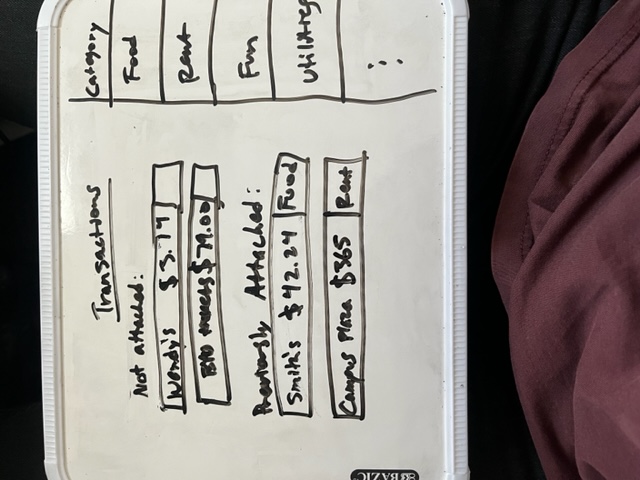 Transactions
Not attached:
Wendy's $3.79
BYU tickets $79.00
Previously Attached:
Smith's $42.24 Food
Campus Plaza $365 Rent
Category
Food
Rent
Fun
Utilities
⋮
BAZIC